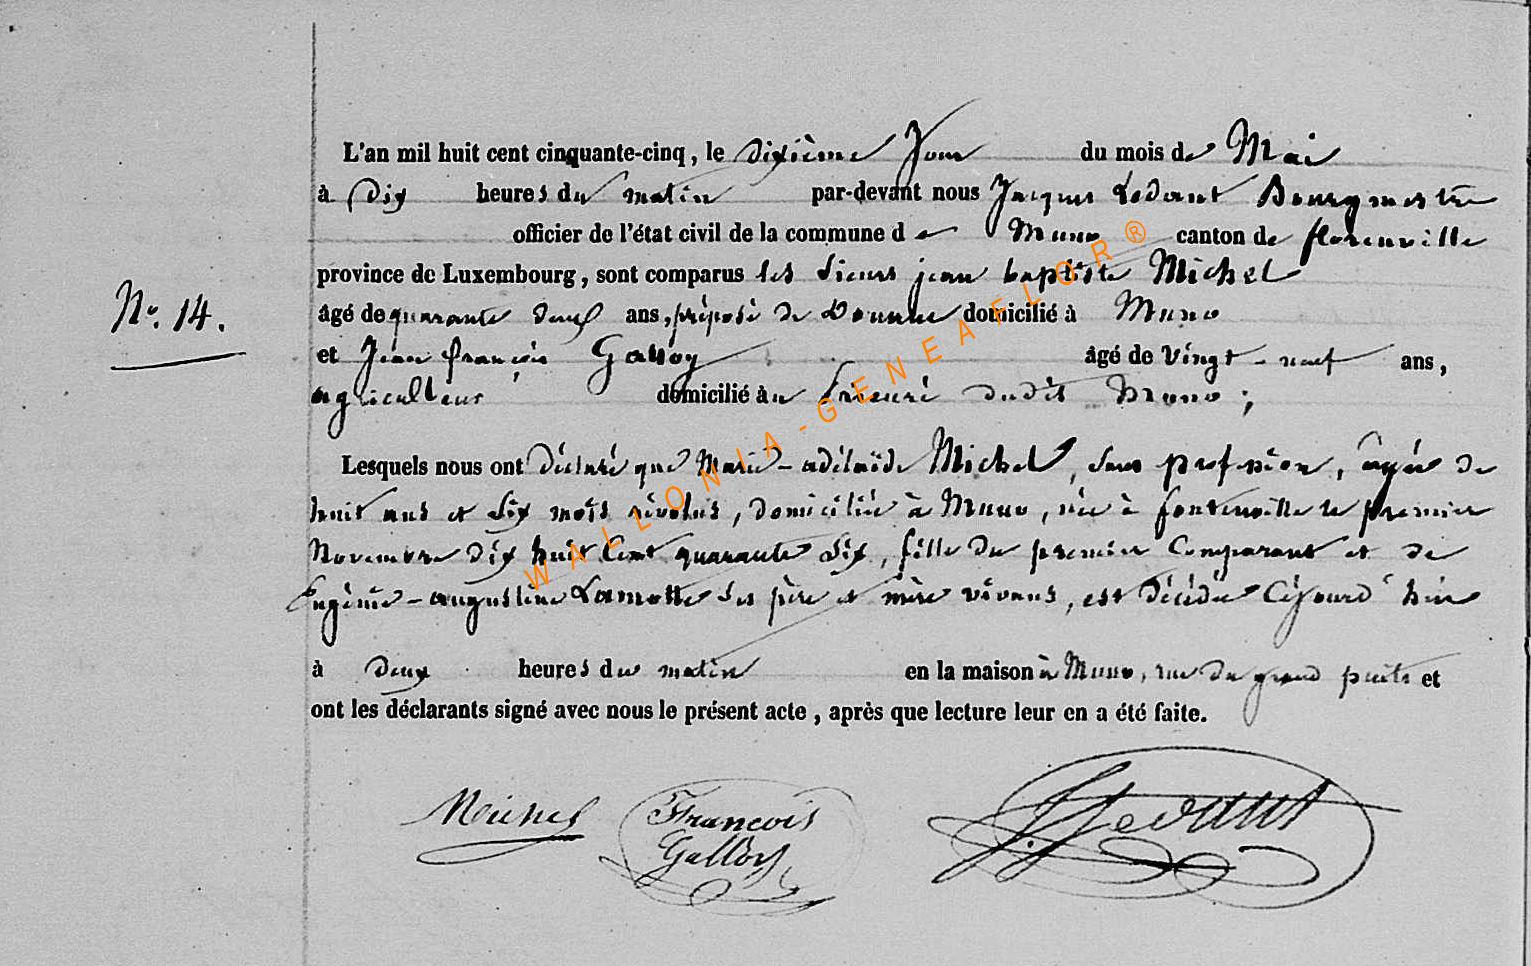 L'an mil huit cent cinquante-cinq, le dixième Jour du mois de Mai
à dix heures du matin par-devant nous Jacques Ledant Bourgmestre
officier de l'état civil de la commune de Muno canton de florenville
province de Luxembourg, sont comparus les Sieurs jean baptiste Michel
No. 14.
âgé de quarante deux ans, préposé de Douane domicilié à Muno
et Jean françois Galloy âgé de vingt-neuf ans,
agriculteur domicilié au Prieuré dudit Muno;
Lesquels nous ont déclaré que Marie-adélaïde Michel, sans profession, âgée de
huit ans et six mois révolus, domiciliée à Muno, née à fontenoille le premier
Novembre dix huit Cent quarante six, fille du premier Comparant et de
Eugénie-augustine Lamotte ses père et mère vivans, est décédée Cejourd'hui
à deux heures du matin en la maison à Muno, rue du grand puits et
ont les déclarants signé avec nous le présent acte, après que lecture leur en a été faite.
Michel François Galloy JLedant
WALLONIA-GENEAFLOR®